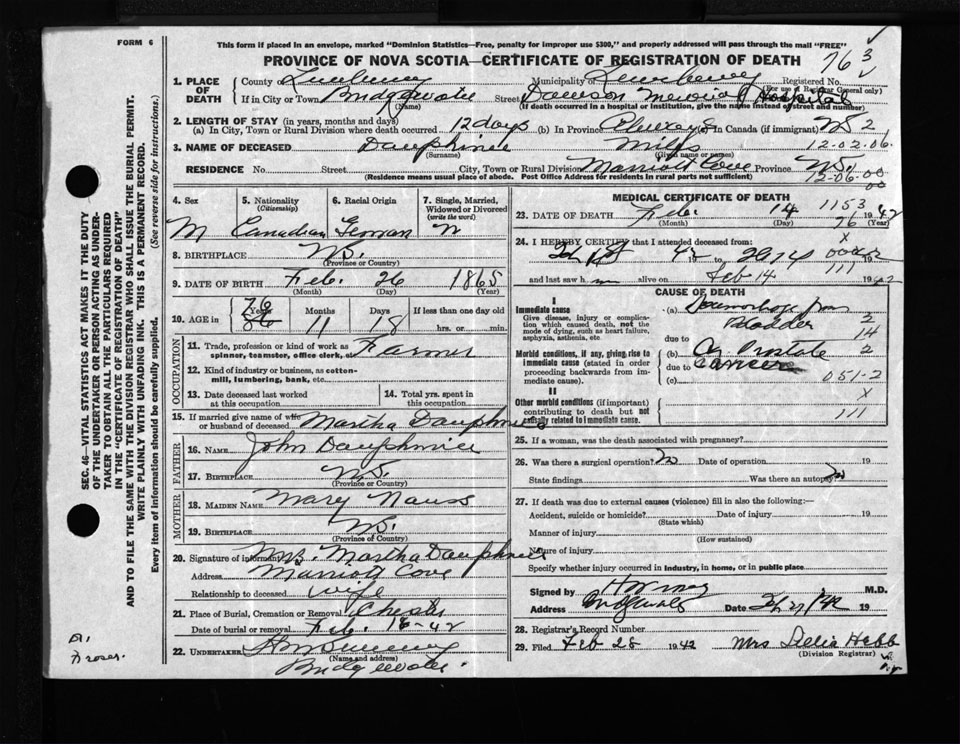 FORM 6
This form if placed in an envelope, marked "Dominion Statistics—Free, penalty for improper use $300," and properly addressed will pass through the mail "FREE"
PROVINCE OF NOVA SCOTIA—CERTIFICATE OF REGISTRATION OF DEATH
763
1. PLACE OF DEATH County of Lunenburg Municipality of Lunenburg Registered No.
(For use of Registrar General only)
If in City or Town Bridgewater Street Dawson Memorial Hospital
(Name) (If death occurred in a hospital or institution, give the name instead of street and number)
2. LENGTH OF STAY (in years, months and days)
(a) In City, Town or Rural Division where death occurred 12 days (b) In Province Always In Canada (if immigrant) NS 2
3. NAME OF DECEASED Dauphinee Miles 12-02.06.
(Surname) (Given name or names)
RESIDENCE No. Street City, Town or Rural Division Marriott Cove Province NS.
(Residence means usual place of abode. Post Office Address for residents in rural parts not sufficient) 12-06.00
00
4. Sex 5. Nationality (Citizenship) 6. Racial Origin 7. Single, Married, Widowed or Divorced (write the word)
M Canadian German
8. BIRTHPLACE NS.
(Province or Country)
9. DATE OF BIRTH Feb. 26 1865
(Month) (Day) (Year)
10. AGE in Years Months Days If less than one day old
76
86 11 18 hrs. or min.
OCCUPATION
11. Trade, profession or kind of work as spinner, teamster, office clerk, etc. Farmer
12. Kind of industry or business, as cotton-mill, lumbering, bank, etc.
13. Date deceased last worked at this occupation
14. Total yrs. spent in this occupation
15. If married give name of wife or husband of deceased Martha Dauphinee
FATHER
16. NAME John Dauphinee
17. BIRTHPLACE NS.
(Province or Country)
MOTHER
18. MAIDEN NAME Mary Nauss
19. BIRTHPLACE NS.
(Province or Country)
20. Signature of informant Mrs. Martha Dauphinee
Address Marriott Cove
Relationship to deceased wife
21. Place of Burial, Cremation or Removal Chester
Date of burial or removal Feb. 16-42
22. UNDERTAKER
(Name and address)
Bridgewater.
MEDICAL CERTIFICATE OF DEATH
23. DATE OF DEATH Feb. 14 1942
(Month) (Day) (Year)
1153
76
24. I HEREBY CERTIFY that I attended deceased from
X
Feb 42 19
and last saw h m alive on Feb 14 1942
111
CAUSE OF DEATH
I
Immediate cause
Give disease, injury or complication which caused death, not the mode of dying, such as heart failure, asphyxia, asthenia, etc.
(a) Haemorrhage from Bladder 2
due to 14
Morbid conditions, if any, giving rise to immediate cause (stated in order proceeding backwards from immediate cause).
(b) Ca Prostate 2
due to cancer
(c) 051-2
II
Other morbid conditions (if important) contributing to death but not causally related to immediate cause.
X
111
25. If a woman, was the death associated with pregnancy?
26. Was there a surgical operation? No Date of operation 19
State findings Was there an autopsy? No
27. If death was due to external causes (violence) fill in also the following:—
Accident, suicide or homicide? Date of injury 19
(State which)
Manner of injury
(How sustained)
Nature of injury
Specify whether injury occurred in industry, in home, or in public place
Signed by M.D.
Address Bridgewater Date 19
28. Registrar's Record Number
29. Filed Feb 28 1942 Mrs Delia Hebb
(Division Registrar)
SEC. 46—VITAL STATISTICS ACT MAKES IT THE DUTY OF THE UNDERTAKER OR PERSON ACTING AS UNDERTAKER TO OBTAIN ALL THE PARTICULARS REQUIRED IN THE "CERTIFICATE OF REGISTRATION OF DEATH" AND TO FILE THE SAME WITH THE DIVISION REGISTRAR WHO SHALL ISSUE THE BURIAL PERMIT.
WRITE PLAINLY WITH UNFADING INK. THIS IS A PERMANENT RECORD.
Every item of information should be carefully supplied. (See reverse side for instructions.)